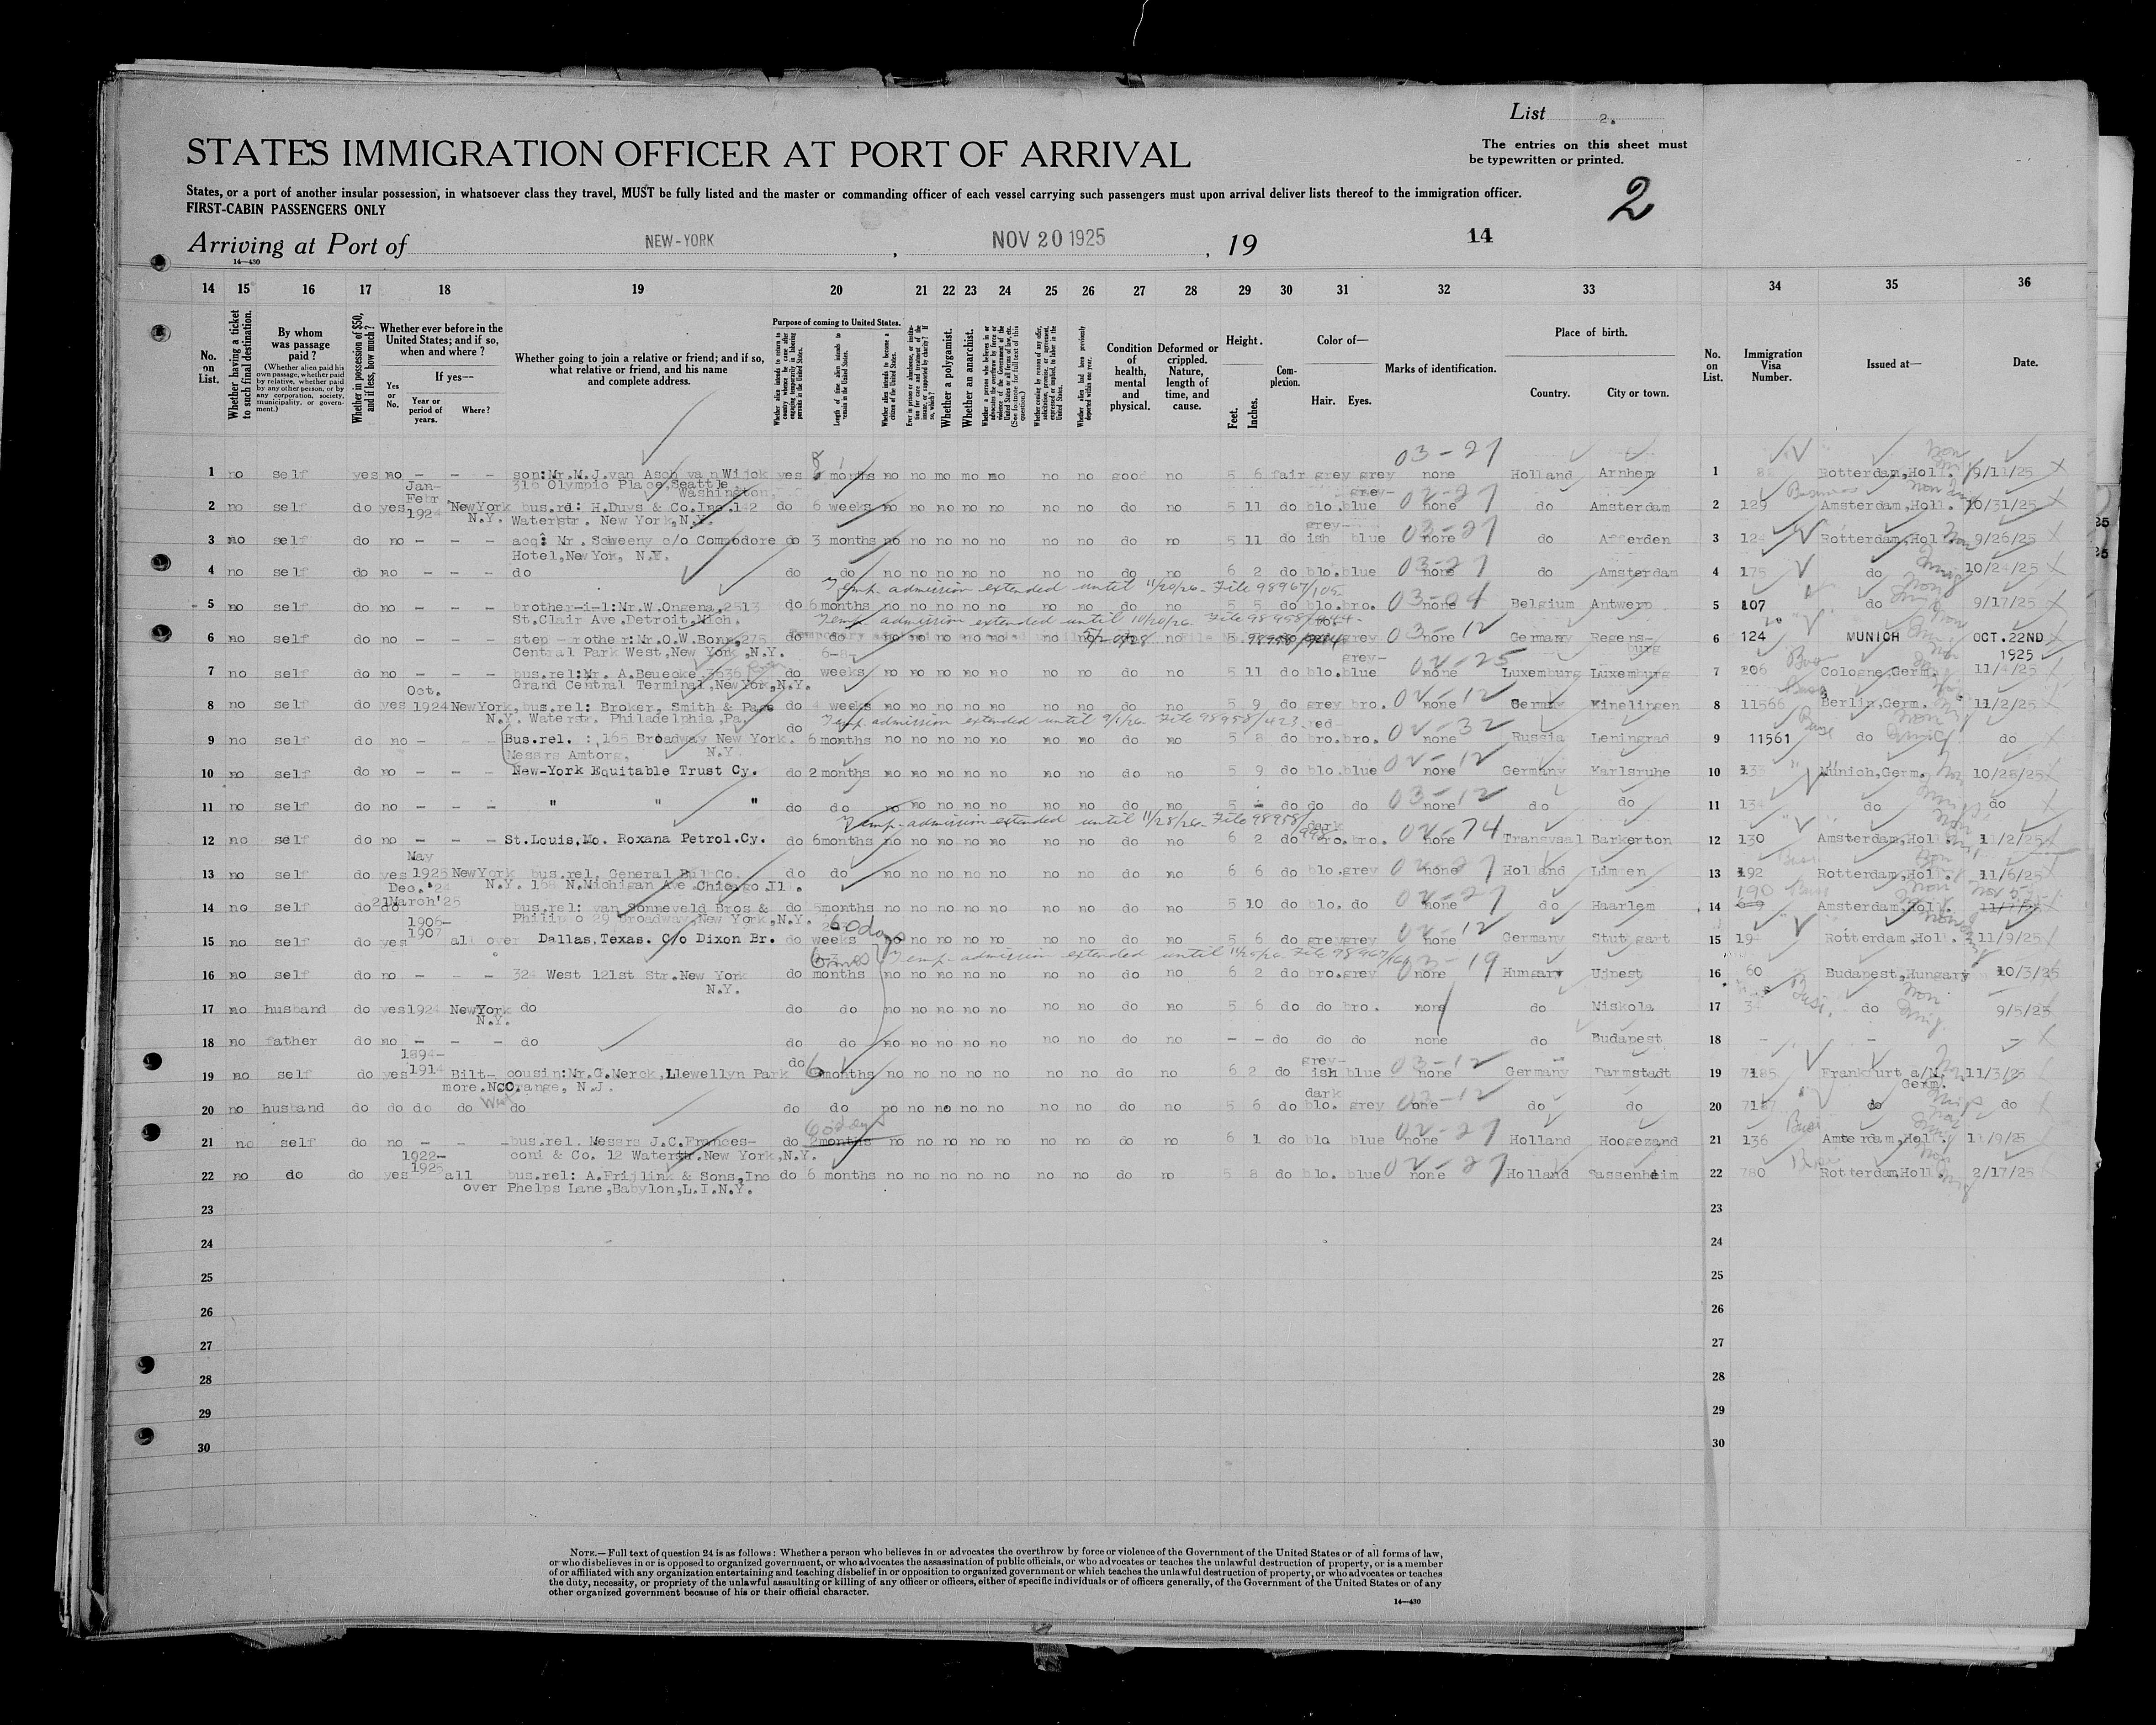 List 2.
The entries on this sheet must
be typewritten or printed.
STATES IMMIGRATION OFFICER AT PORT OF ARRIVAL
States, or a port of another insular possession, in whatsoever class they travel, MUST be fully listed and the master or commanding officer of each vessel carrying such passengers must upon arrival deliver lists thereof to the immigration officer.
FIRST-CABIN PASSENGERS ONLY
2
Arriving at Port of NEW-YORK, NOV 20 1925, 19 14
14—430
14 15 16 17 18 19 20 21 22 23 24 25 26 27 28 29 30 31 32 33 34 35 36
No. on List.
Whether having a ticket to such final destination.
By whom was passage paid?
(Whether alien paid his own passage, whether paid by relative, whether paid by any other person, or by any corporation, society, municipality, or government.)
Whether in possession of $50, and if less, how much?
Whether ever before in the United States; and if so, when and where?
If yes—
Yes or No.
Year or period of years.
Where?
Whether going to join a relative or friend; and if so, what relative or friend, and his name and complete address.
Purpose of coming to United States.
Length of time alien intends to remain in the United States.
Whether alien intends to become a citizen of the United States.
Whether a polygamist.
Whether an anarchist.
Condition of health, mental and physical.
Deformed or crippled. Nature, length of time, and cause.
Height.
Feet. Inches.
Complexion.
Color of—
Hair. Eyes.
Marks of identification.
Place of birth.
Country. City or town.
No. on List.
Immigration Visa Number.
Issued at—
Date.
1 no self yes no - - - son:Mr.M.J.van Asch van Wijck yes 8 months no no no no no no no good no 5 6 fair grey grey 03-27 none Holland Arnhem 1 Rotterdam,Holl. 9/11/25
316 Olympic Place,Seattle Washington,
2 no self do yes Jan-Febr 1924 NewYork N.Y. bus.rel: H.Duys & Co.Inc.142 do 6 weeks no no no no no no no do no 5 11 do blo. grey-blue 02-27 none do Amsterdam 2 129 Business Amsterdam,Holl. 10/31/25
Waterstr. New York,N.Y.
3 no self do no - - - acq: Mr. Sweeny c/o Commodore do 3 months no no no no no no no do no 5 11 do grey-ish blue 03-27 none do Afferden 3 Rotterdam,Holl 9/26/25
Hotel,New Yor, N.Y.
4 no self do no - - - do do do no no no no no no no do no 6 2 do blo. blue 03-27 none do Amsterdam 4 175 do 10/24/25
Temp. admission extended until 11/20/26. File 98967/105
5 no self do no - - - brother-i-l:Mr.W.Ongena,2513 do 6 months no no no no no no no do no 5 5 do blo. bro. 03-04 none Belgium Antwerp 5 107 do 9/17/25
St.Clair Ave.Detroit,Mich.
Temp. admission extended until 10/20/26.
6 no self do no - - - Mr.O.W.Bonn,275 do do no no no no no no no do no grey 03-12 none Germany Regens-burg 6 124 MUNICH OCT.22ND 1925
Central Park West,New York,N.Y.
7 no self do no - - - bus.rel:Mr. A.Beuecke,3636 do 6-8 weeks no no no no no no no do no 5 11 do blo. grey-blue 02-25 none Luxemburg Luxemburg 7 206 Cologne,Germ. 11/4/25
Grand Central Terminal,New York,N.Y.
8 no self do yes Oct. 1924 NewYork, N.Y. bus.rel: Broker, Smith & Page do 4 weeks no no no no no no no do no 5 9 do grey bro. 02-12 none Germany Kinelingen 8 11566 Berlin,Germ. 11/2/25
Waterstr. Philadelphia,Pa.
Temp. admission extended until 9/1/26 File 98958/423
9 no self do no - - Bus.rel. :,165 Broadway New York. N.Y. do 6months no no no no no no no do no 5 8 do red-bro. bro. 02-32 none Russia Leningrad 9 11561 do do
Messrs Amtorg,
10 no self do no - - - New-York Equitable Trust Cy. do 2 months no no no no no no no do no 5 9 do blo. blue 02-12 none Germany Karlsruhe 10 Munich,Germ. 10/28/25
11 no self do no - - - " " " do do no no no no no no no do no 5 - do do do 03-12 none do do 11 134 do do
Temp. admission extended until 11/28/26. File 98958/998
12 no self do no - - - St.Louis,Mo. Roxana Petrol.Cy. do 6months no no no no no no no do no 6 2 do dark bro. bro. 02-74 none Transvsal Barkerton 12 130 Amsterdam,Holl 11/2/25
13 no self do yes May 1925 NewYork N.Y. bus.rel. General Bulb Co. do do no no no no no no no do no 6 6 do blo. grey 02-27 none Holland Limmen 13 192 Rotterdam,Holl. 11/6/25
168 N.Michigan Ave.Chicago.Ill.
14 no self do do Dec.'24 21March'25 bus.rel: van Sonneveld Bros & do months no no no no no no no do no 5 10 do blo. do 02-27 none do Haarlem 14 190 Amsterdam,Holl
Philip o 29 Broadway,New York,N.Y.
15 no self do yes 1906-1907 all over Dallas,Texas. C/o Dixon Br. do 60 days weeks no no no no no no no do no 5 6 do grey grey 02-12 none Germany Stuttgart 15 194 Rotterdam,Holl. 11/9/25
Temp. admission extended until
16 no self do no - - - 324 West 121st Str.New York N.Y. do months no no no no no no no do no 6 2 do bro. grey 19 none Hungary Ujpest 16 60 Budapest,Hungary 10/3/25
17 no husband do yes 1924 NewYork N.Y. do do do no no no no no no no do no 5 6 do do bro. none do Miskola 17 do 9/5/25
18 no father do no - - - do do do no no no no no no no do no - - do do do none do Budapest 18 - - -
19 no self do yes 1894-1914 Bilt-more.N.C. cousin:Mr.G.Merck,Llewellyn Park do 6 months no no no no no no no do no 6 2 do grey-ish blue 03-12 none Germany Darmstadt 19 7185 Frankfurt a/M. Germ. 11/3/25
West Orange, N.J.
20 no husband do do do do do do do no no no no no no no do no 5 6 do dark blo. grey 03-12 none do do 20 do do
21 no self do no - - - bus.rel. Messrs J.C.Frances- do 60 days 2months no no no no no no no do no 6 1 do blo blue 02-27 none Holland Hoogezand 21 136 Busi Amsterdam,Holl. 11/9/25
coni & Co. 12 Waterstr.New York,N.Y.
22 no do do yes 1922-1925 all over bus.rel: A.Frijlink & Sons,Inc do 6 months no no no no no no no do no 5 8 do blo. blue 02-27 none Holland Sassenheim 22 780 Rotterdam,Holl. 2/17/25
Phelps Lane,Babylon,L.I.N.Y.
23 23
24 24
25 25
26 26
27 27
28 28
29 29
30 30
NOTE.—Full text of question 24 is as follows: Whether a person who believes in or advocates the overthrow by force or violence of the Government of the United States or of all forms of law,
or who disbelieves in or is opposed to organized government, or who advocates the assassination of public officials, or who advocates or teaches the unlawful destruction of property, or is a member
of or affiliated with any organization entertaining and teaching disbelief in or opposition to organized government or which teaches the unlawful destruction of property, or who advocates or teaches
the duty, necessity, or propriety of the unlawful assaulting or killing of any officer or officers, either of specific individuals or of officers generally, of the Government of the United States or of any
other organized government because of his or their official character.
14—430